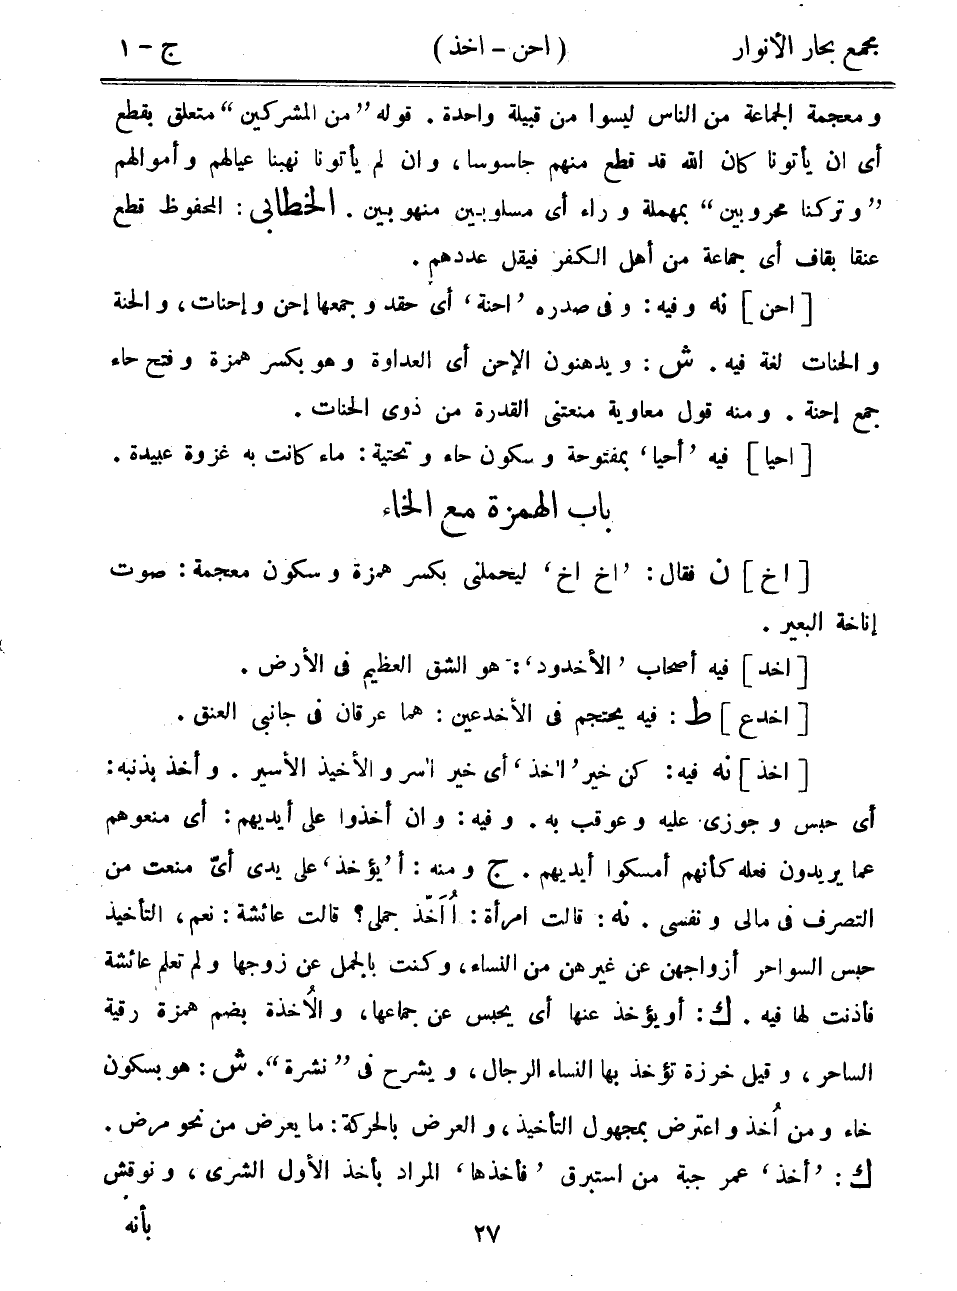 مجمع بحار الأنوار (احن - اخذ) ج - ١
و معجمة الجماعة من الناس ليسوا من قبيلة واحدة . قوله ”من المشركين“ متعلق بقطع
أى ان يأتونا كان الله قد قطع منهم جاسوسا، و ان لم يأتونا نهبنا عيالهم و أموالهم
”و تركنا محروبين“ بمهملة و راء أى مسلوبين منهوبين . الخطابى : المحفوظ قطع
عنقا بقاف أى جماعة من أهل الكفر فيقل عددهم .
[احن] نه و فيه : و فى صدره ’احنة‘ أى حقد و جمعها إحن و إحنات، و الحنة
و الحنات لغة فيه . ش : و يدهنون الإحن أى العداوة و هو بكسر همزة و فتح حاء
جمع إحنة . و منه قول معاوية منعتنى القدرة من ذوى الحنات .
[احيا] فيه ’أحيا‘ بمفتوحة و سكون حاء و تحتية : ماء كانت به غزوة عبيدة .
باب الهمزة مع الخاء
[اخ] ن فقال : ’اخ اخ‘ ليحملنى بكسر همزة و سكون معجمة : صوت
إناخة البعير .
[اخد] فيه أصحاب ’الأخدود‘ : هو الشق العظيم فى الأرض .
[اخدع] ط : فيه يحتجم فى الأخدعين : هما عرقان فى جانبى العنق .
[اخذ] نه فيه : كن خير ’اٰخذ‘ أى خير اٰسر و الأخيذ الأسير . و أخذ بذنبه :
أى حبس و جوزى عليه و عوقب به . و فيه : و ان أخذوا على أيديهم : أى منعوهم
عما يريدون فعله كأنهم أمسكوا أيديهم . ج و منه : أ ’يؤخذ‘ على يدى أىّ منعت من
التصرف فى مالى و نفسى . نه : قالت امرأة : أُاَخّذ جملى؟ قالت عائشة : نعم، التأخيذ
حبس السواحر أزواجهن عن غيرهن من النساء، و كنت بالجمل عن زوجها و لم تعلم عائشة
فأذنت لها فيه . ك : أو يؤخذ عنها أى يحبس عن جماعها، و الأُخذة بضم همزة رقية
الساحر، و قيل خرزة تؤخذ بها النساء الرجال، و يشرح فى ”نشرة“. ش : هو بسكون
خاء و من أُخذ و اعترض بمجهول التأخيذ، و العرض بالحركة : ما يعرض من نحو مرض .
ك : ’أخذ‘ عمر جبة من استبرق ’فأخذها‘ المراد بأخذ الأول الشرى، و نوقش
بأنه
٢٧